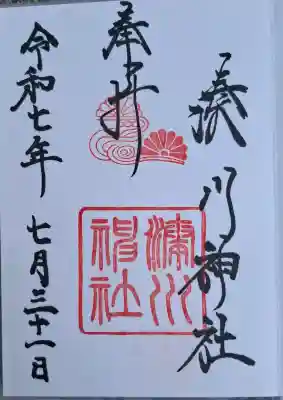 奉拝
湊川神社
湊川神社
令和七年 七月三十一日